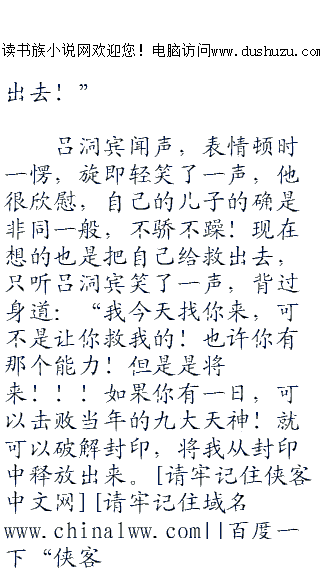 读书族小说网欢迎您！电脑访问www.dushuzu.com
出去！”
吕洞宾闻声，表情顿时
一愣，旋即轻笑了一声，他
很欣慰，自己的儿子的确是
非同一般，不骄不躁！现在
想的也是把自己给救出去，
只听吕洞宾笑了一声，背过
身道：“我今天找你来，可
不是让你救我的！也许你有
那个能力！但是是将
来！！！如果你有一日，可
以击败当年的九大天神！就
可以破解封印，将我从封印
中释放出来。[请牢记住侠客
中文网][请牢记住域名
www.china1ww.com||百度一
下“侠客